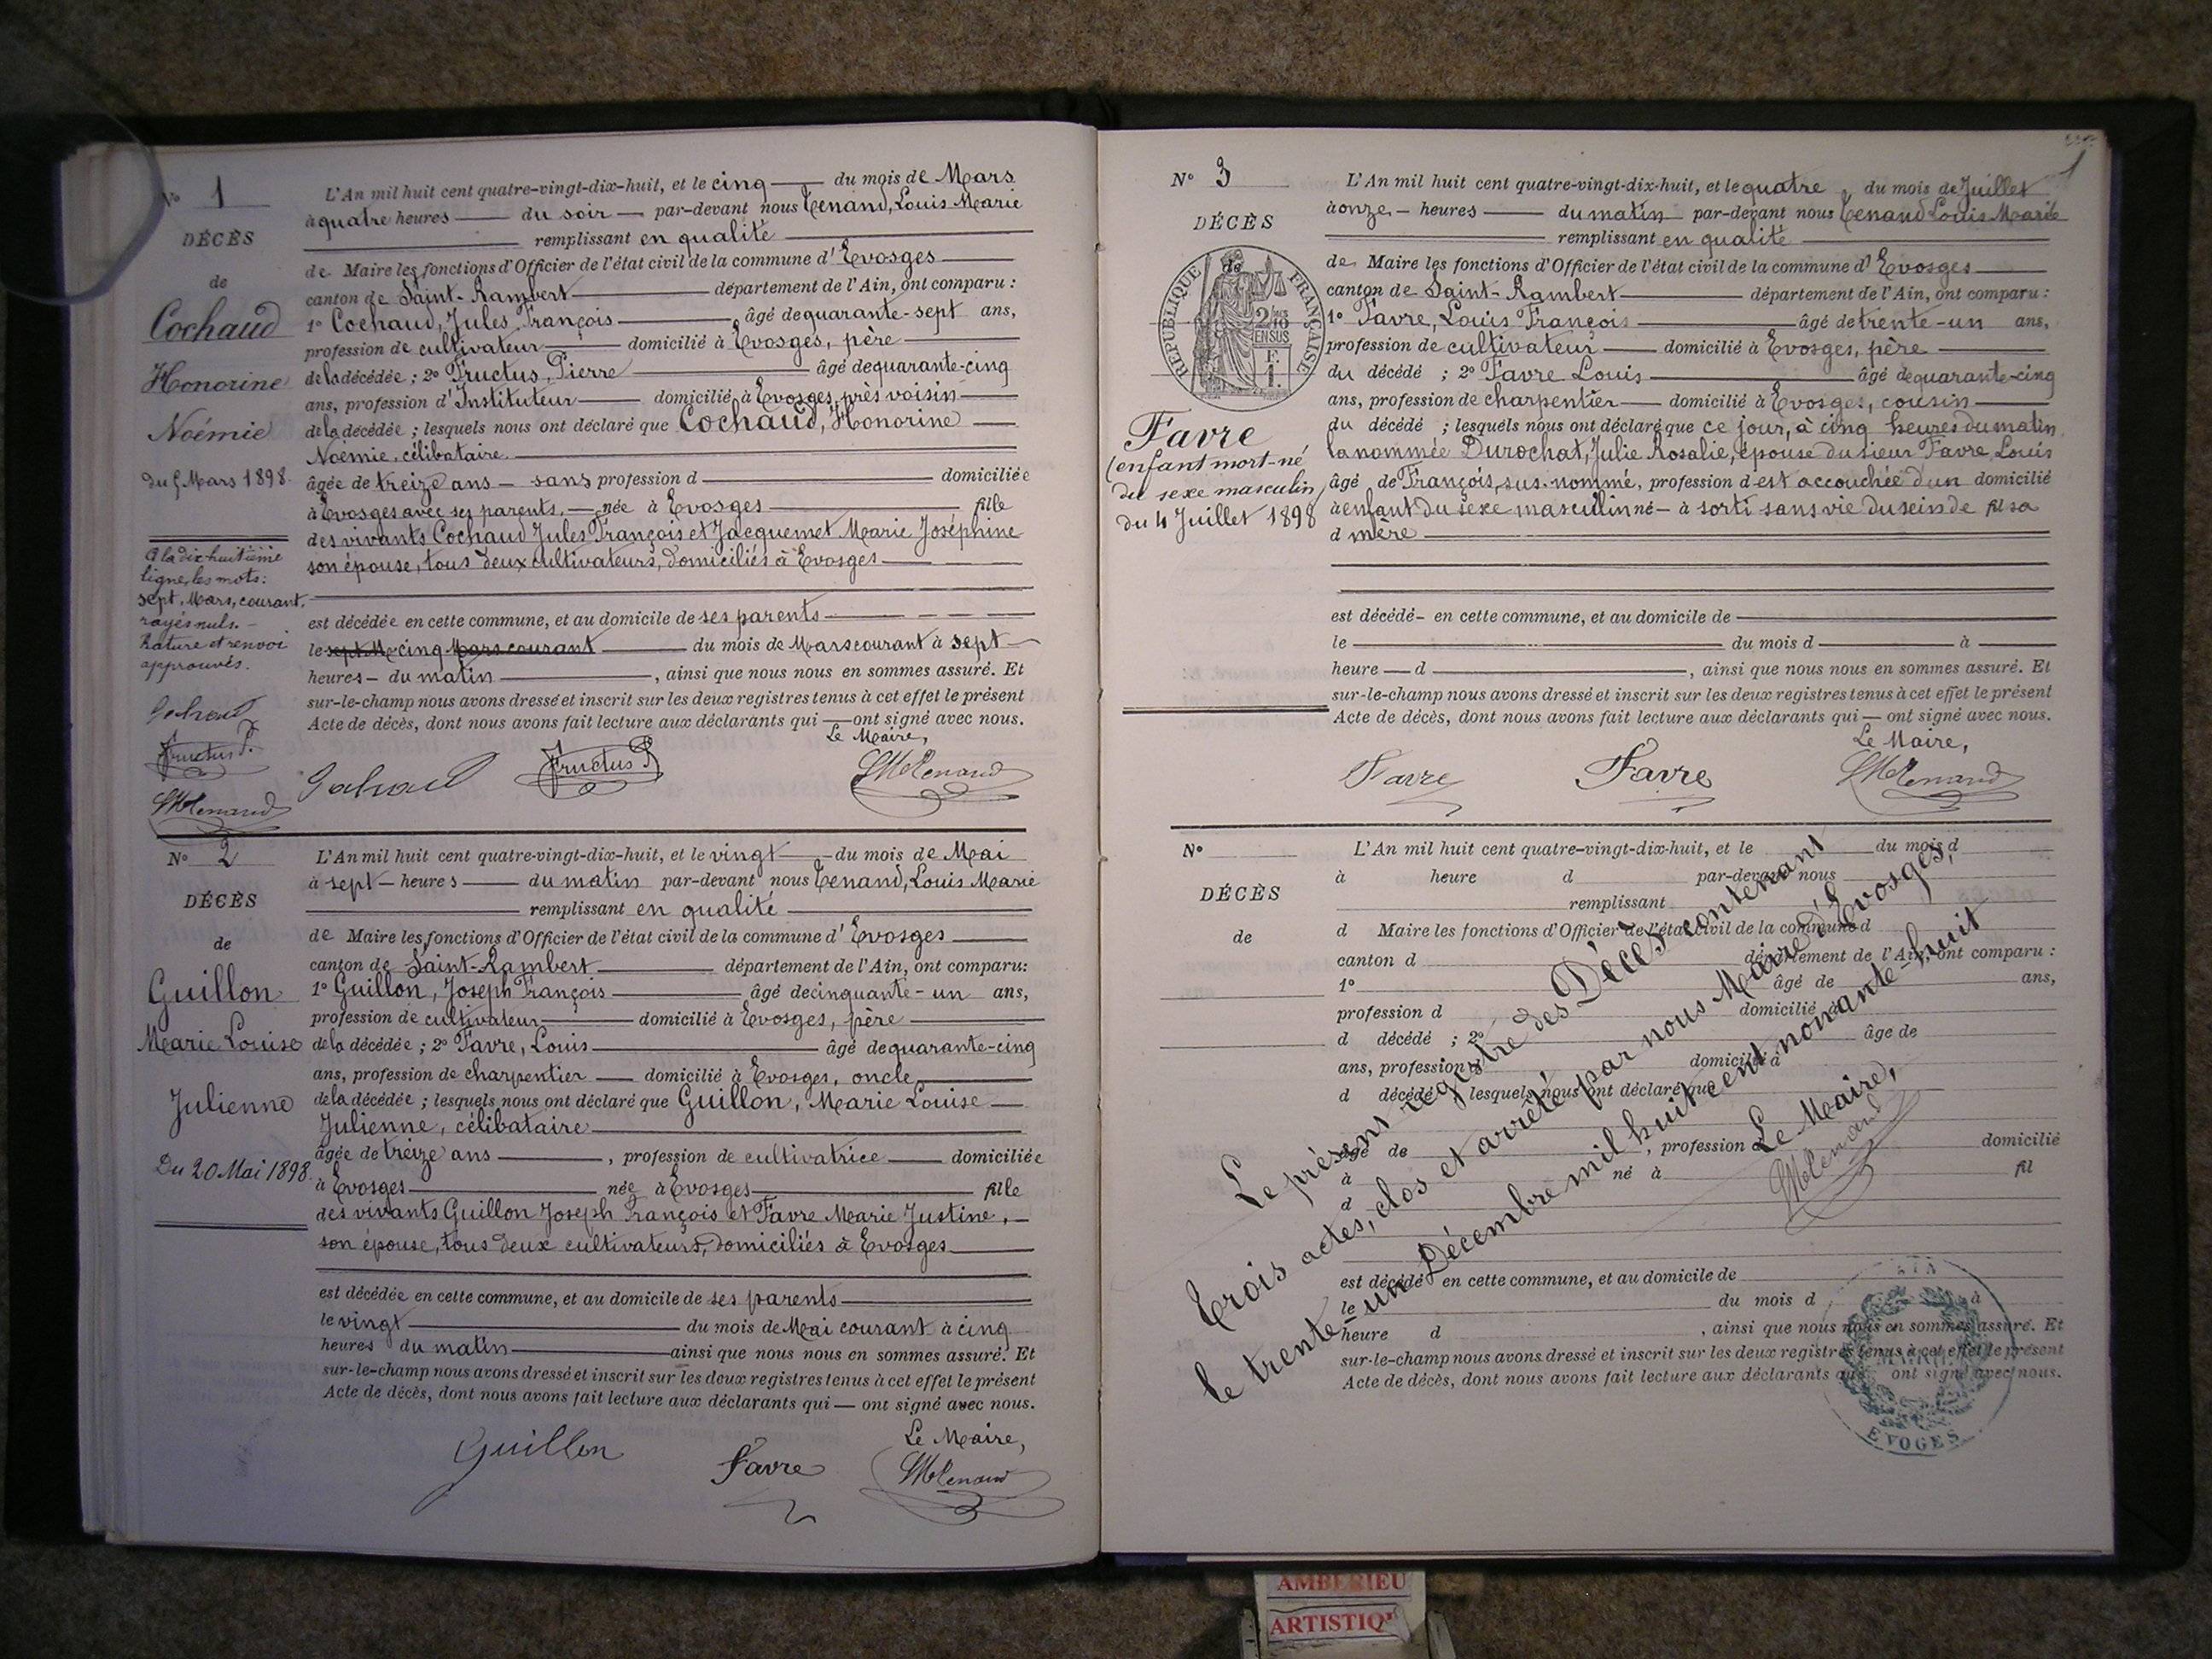 N° 1
DÉCÈS
de
Cochaud
Honorine
Noémie
du 5 Mars 1898.
A la dix-huitième
ligne, les mots:
sept, Mars, courant,
rayés nuls. -
Rature et renvoi
approuvés.
Fructus P.
L'An mil huit cent quatre-vingt-dix-huit, et le cinq du mois de Mars
à quatre heures du soir par-devant nous Tenand, Louis Marie
remplissant en qualité
de Maire les fonctions d'Officier de l'état civil de la commune d'Evosges
canton de Saint-Rambert département de l'Ain, ont comparu :
1° Cochaud, Jules François âgé de quarante-sept ans,
profession de cultivateur domicilié à Evosges, père
de la décédée ; 2° Fructus, Pierre âgé de quarante-cinq
ans, profession d'Instituteur domicilié à Evosges, près voisin
de la décédée ; lesquels nous ont déclaré que Cochaud, Honorine
Noémie, célibataire
âgée de treize ans - sans profession d domiciliée
à Evosges avec ses parents, - née à Evosges fille
des vivants Cochaud Jules François et Jacquemet Marie Joséphine
son épouse, tous deux cultivateurs, domiciliés à Evosges
est décédée en cette commune, et au domicile de ses parents
le cinq Mars courant du mois de Mars courant à sept
heures - du matin , ainsi que nous nous en sommes assuré. Et
sur-le-champ nous avons dressé et inscrit sur les deux registres tenus à cet effet le présent
Acte de décès, dont nous avons fait lecture aux déclarants qui — ont signé avec nous.
Le Maire,
Fructus P.
N° 2
DÉCÈS
de
Guillon
Marie Louise
Julienne
Du 20 Mai 1898.
L'An mil huit cent quatre-vingt-dix-huit, et le vingt du mois de Mai
à sept - heures du matin par-devant nous Tenand, Louis Marie
remplissant en qualité
de Maire les fonctions d'Officier de l'état civil de la commune d'Evosges
canton de Saint-Rambert département de l'Ain, ont comparu:
1° Guillon, Joseph François âgé de cinquante-un ans,
profession de cultivateur domicilié à Evosges, père
de la décédée ; 2° Favre, Louis âgé de quarante-cinq
ans, profession de charpentier domicilié à Evosges, oncle
de la décédée ; lesquels nous ont déclaré que Guillon, Marie Louise
Julienne, célibataire
âgée de treize ans , profession de cultivatrice domiciliée
à Evosges née à Evosges fille
des vivants Guillon Joseph François et Favre Marie Justine,
son épouse, tous deux cultivateurs, domiciliés à Evosges
est décédée en cette commune, et au domicile de ses parents
le vingt du mois de Mai courant à cinq
heures du matin ainsi que nous nous en sommes assuré. Et
sur-le-champ nous avons dressé et inscrit sur les deux registres tenus à cet effet le présent
Acte de décès, dont nous avons fait lecture aux déclarants qui — ont signé avec nous.
Le Maire,
Guillon
Favre
N° 3
DÉCÈS
de
RÉPUBLIQUE FRANÇAISE
2/10 EN SUS
F. 1.
Favre
(enfant mort-né
du sexe masculin)
du 4 Juillet 1898
1
L'An mil huit cent quatre-vingt-dix-huit, et le quatre du mois de Juillet
à onze - heures du matin par-devant nous Tenand Louis Marie
remplissant en qualité
de Maire les fonctions d'Officier de l'état civil de la commune d'Evosges
canton de Saint-Rambert département de l'Ain, ont comparu :
1° Favre, Louis François âgé de trente-un ans,
profession de cultivateur domicilié à Evosges, père
du décédé ; 2° Favre Louis âgé de quarante-cinq
ans, profession de charpentier domicilié à Evosges, cousin
du décédé ; lesquels nous ont déclaré que ce jour, à cinq heures du matin
la nommée Durochat, Julie Rosalie, épouse du sieur Favre Louis
âgé de François, sus-nommé, profession d est accouchée d'un domicilié
à enfant du sexe masculin né - à sorti sans vie du sein de fil sa
d mère
est décédé - en cette commune, et au domicile de
le du mois d à
heure d , ainsi que nous nous en sommes assuré. Et
sur-le-champ nous avons dressé et inscrit sur les deux registres tenus à cet effet le présent
Acte de décès, dont nous avons fait lecture aux déclarants qui — ont signé avec nous.
Le Maire,
Favre
Favre
N°
DÉCÈS
de
L'An mil huit cent quatre-vingt-dix-huit, et le du mois d
à heure d par-devant nous
remplissant
d Maire les fonctions d'Officier de l'état civil de la commune d
canton d département de l'Ain, ont comparu :
1° âgé de ans,
profession d domicilié à
d décédé ; 2° âge de
ans, profession d domicilié à
d décédé lesquels nous ont déclaré que
âgé de , profession d domicilié
à né à fil
d
est décédé en cette commune, et au domicile de
le du mois d à
heure d , ainsi que nous nous en sommes assuré. Et
sur-le-champ nous avons dressé et inscrit sur les deux registres tenus à cet effet le présent
Acte de décès, dont nous avons fait lecture aux déclarants qui ont signé avec nous.
Le présent registre des Décès contenant
trois actes, clos et arrêté par nous Maire d'Evosges,
le trente-un Décembre mil huit cent nonante-huit
Le Maire,
AIN
MAIRIE
EVOGES
AMBERIEU
ARTISTIQ